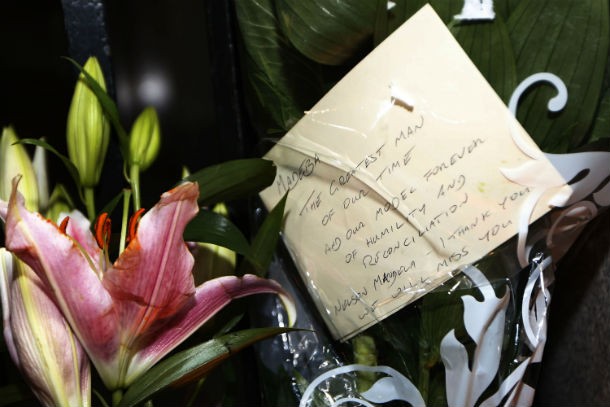 MADEBA
THE GREATEST MAN
OF OUR TIME
AND OUR MODEL FOREVER
OF HUMILITY AND
RECONCILIATION
NELSON MANDELA I THANK YOU
WE WILL MISS YOU